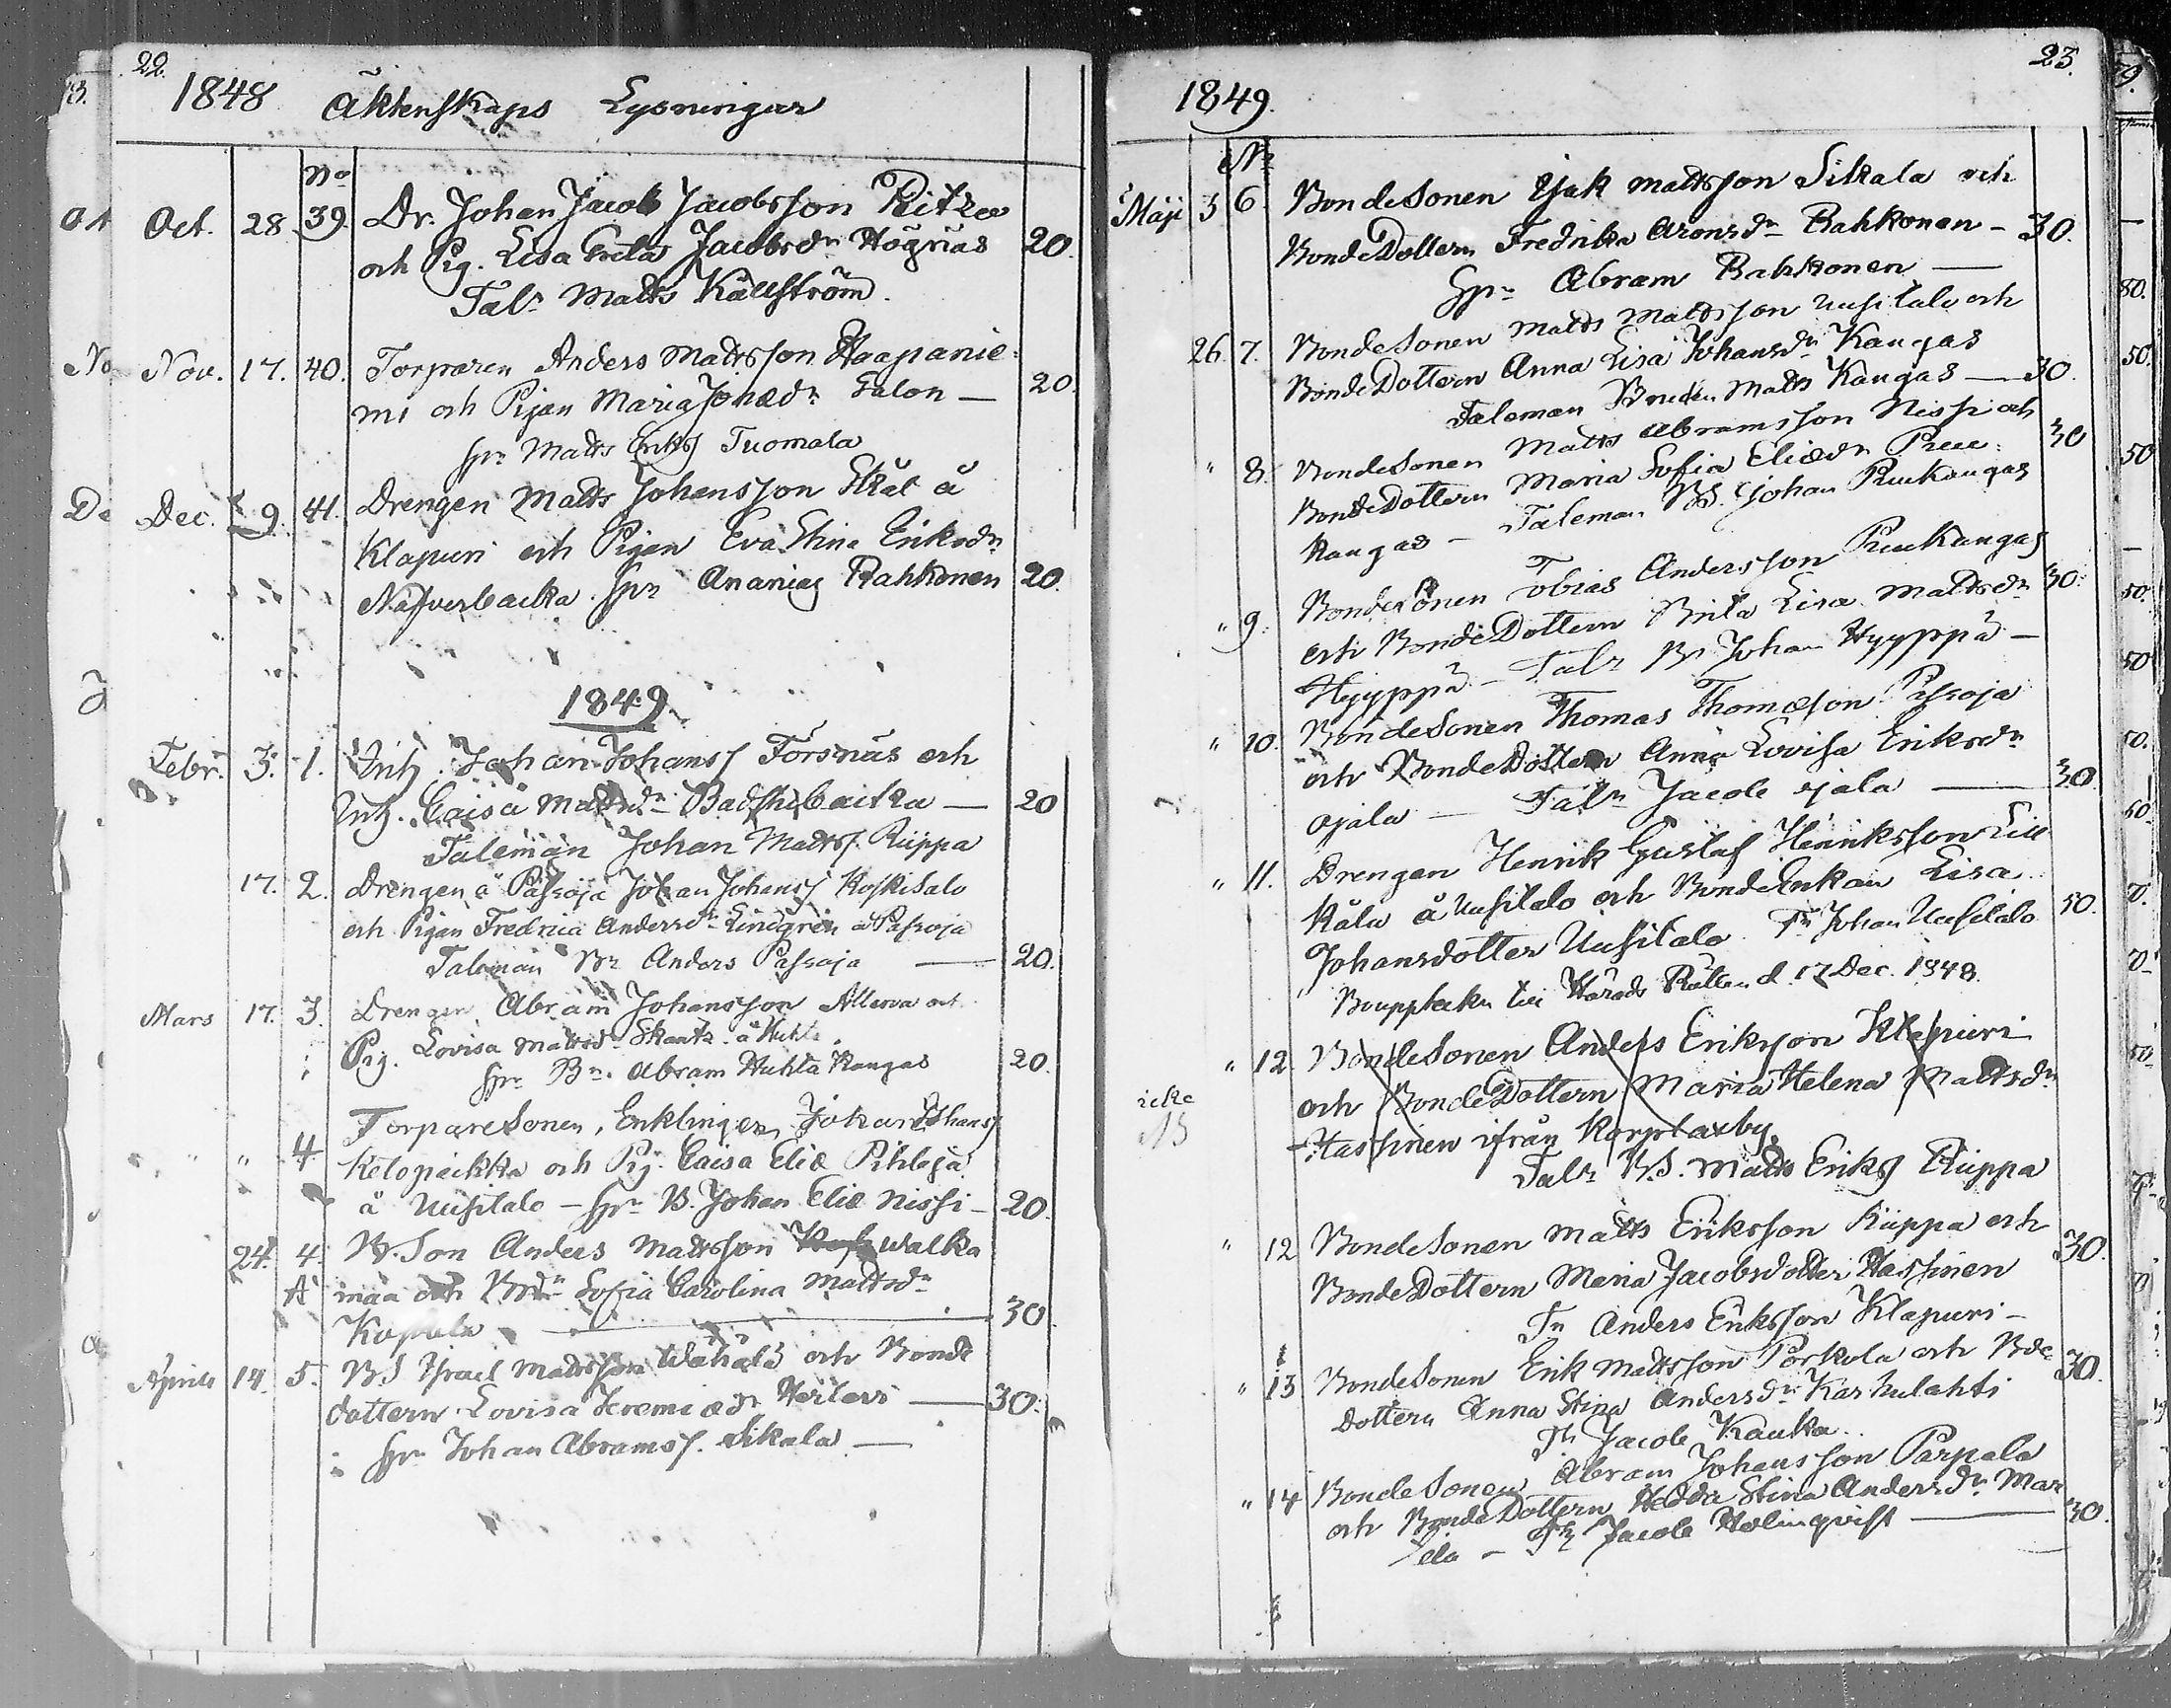 22.
1848 Äktenskaps Lysningar
No
Oct. 28. 39. Dr. Johan Jacob Jacobsson Ritze
och Pig. Lisa Greta Jacobsdr Högnäs 20.
Talr Matts Källström.
Nov. 17. 40. Torparen Anders Mattsson Haapanie-
mi och Pigan Maria Jonædr Salon — 20.
Spr Matts Eriks Tuomala
Dec. 9. 41. Drengen Matts Johansson Skat å
Klapuri och Pigan Eva Stina Eriksdr
Näfverbacka. Spr Ananias Rahkonen 20.
1849.
Febr. 3. 1. Inh. Johan Johanss Forsnäs och
Inh. Caisa Mattsdr Badstubacka — 20
Taleman Johan Matts. Riippa
17. 2. Drengen å Passoja Johan Johans Koskisalo
och Pigan Fredrica Andersdr Lindgren å Passoja
Taleman Br Anders Passoja — 20.
Mars 17. 3. Drengen Abram Johansson och
Pig. Lovisa Mattsdr Skantz å Huhta
Spr Bn. Abram Huhta Kangas 20.
" " 4 Torparesonen, Enklingen, Johan Johans
Kelopäickka och Pig. Caisa Eliæ Pihlaja
å Uusitalo — Spr B. Johan Eliæ Nissi — 20.
24. 4. B. Son Anders Mattsson Walka
A maa och Brdr Sofia Carolina Mattsdr
Kopsala — 30
Aprill 14. 5. B.S Israel Mattsson och Bonde
dottern Lovisa Jeremiædr Herlevi — 30.
Spr Johan Abrams. Sikala —
23.
1849.
No
Maji 5 6. Bondesonen Isak Mattsson Sikala och
BondeDottern Fredrika Aronsdr Rahkonen — 30.
Spr Abram Rahkonen —
26. 7. Bondesonen Matts Mattsson Uusitalo och
BondeDottern Anna Lisa Johansdr Kangas
Taleman Bonden Matts Kangas — 30.
" 8. Bondesonen Matts Abramsson Nissi och 30
BondeDottern Maria Sofia Eliædr Ruu-
kangas — Taleman BS. Johan Ruukangas
" 9. Bondesonen Tobias Andersson Ruukangas
och BondeDottern Brita Lisa Mattsdr 30.
Hyyppä — Talr Br Johan Hyyppä —
" 10. Bondesonen Thomas Thomæson Passoja
och BondeDottern Anna Lovisa Eriksdr
Ojala — Talr Jacob Ojala — 30.
" 11. Drengen Henrik Gustaf Henriksson Lill
Kåla å Uusitalo och BondeEnkan Lisa 50.
Johansdotter Uusitalo. Tr Johan Uusitalo
Bouppteckn till Härads Rätten d. 17 Dec. 1848.
" 12. Bondesonen Anders Eriksson Klapuri
icke och BondeDottern Maria Helena Mattsdr
NB Hassinen ifrån Korplaxby.
Talr B.S. Matts Eriks Riippa
" 12 Bondesonen Matts Eriksson Riippa och 30.
BondeDottern Maria Jacobsdotter Hassinen
Tn Anders Eriksson Klapuri —
" 13 Bondesonen Erik Mattsson Porkola och Bde 30.
Dottern Anna Stina Andersdr Karhulahti
Tn Jacob Kauka
" 14 Bondesonen Abram Johansson Parpala
och BondeDottern Hedda Stina Andersdr Mar
ela — Tn Jacob Holmqvist — 30.